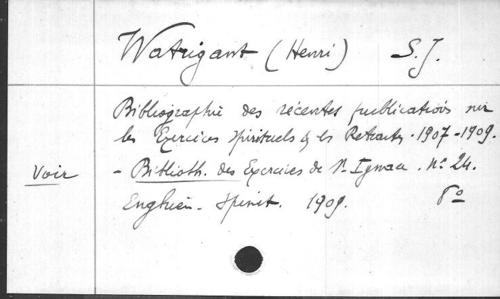 Watrigant (Henri) S. J.
Bibliographie des récentes publications sur
les Exercices spirituels & les Retraites. 1907-1909.
Voir
- Biblioth. des Exercices de St Ignace. No 24.
Enghien - Spirit. 1909. 8o